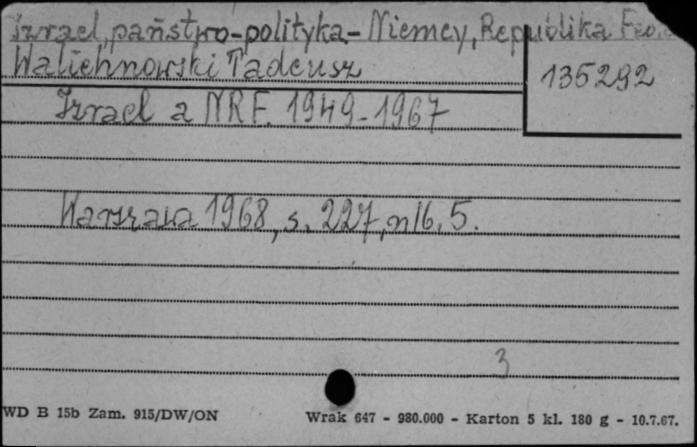 Izrael, państwo-polityka-Niemcy, Republika Fed.
Walichnowski Tadeusz
135292
Izrael a NRF. 1949-1967
Warszawa 1968, s. 227, nlb. 5.
3
WD B 15b Zam. 915/DW/ON
Wrak 647 - 980.000 - Karton 5 kl. 180 g - 10.7.67.